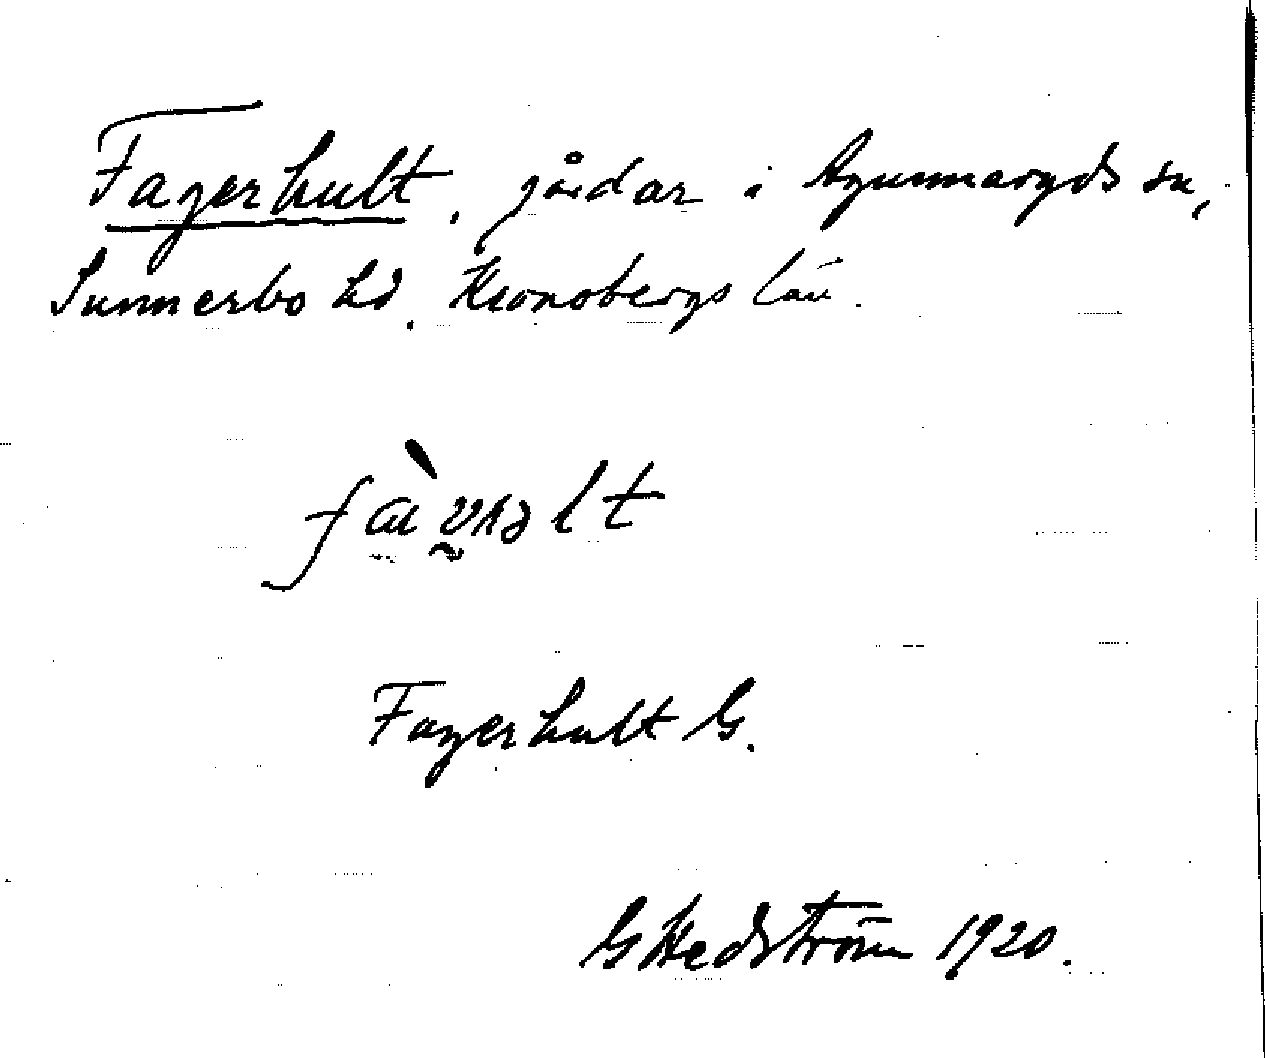 Fagerhult, gårdar i Agunnaryds sn,
Sunnerbo hd, Kronobergs län.
fàvəlt
Fagerhult G.
G Hedström 1920.